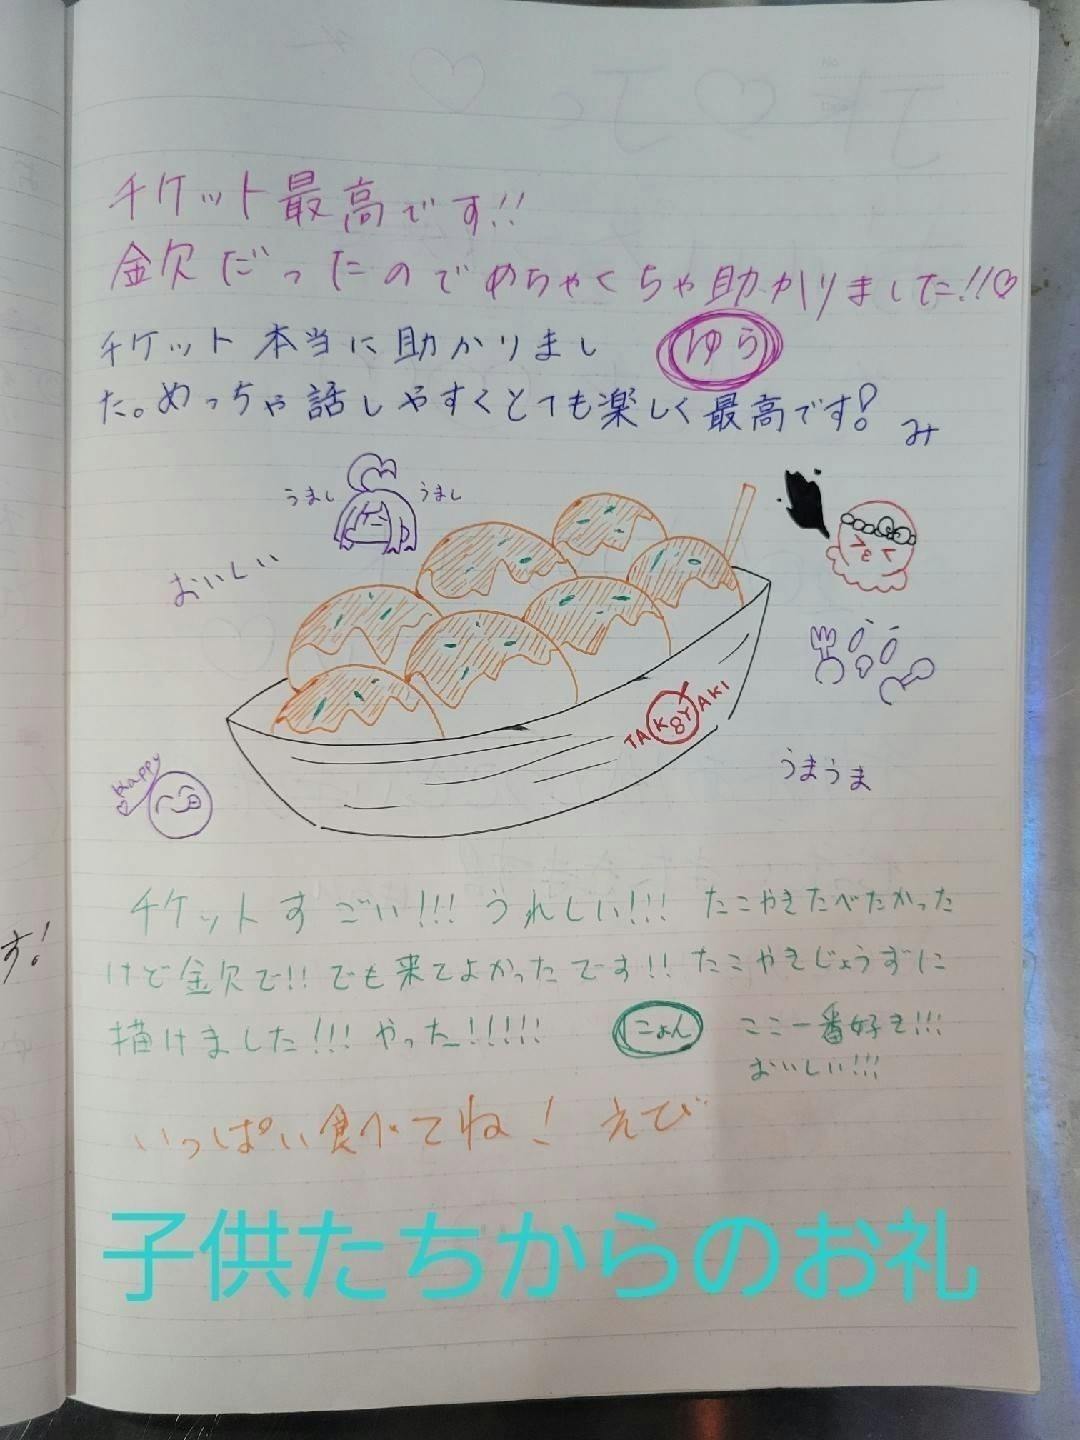 チケット最高です!!
金欠だったのでめちゃくちゃ助かりました!!♡
ゆう
チケット本当に助かりまし
た。めっちゃ話しやすくとても楽しく最高です!
み
うまし
うまし
おいしい
TAKOYAKI
うまうま
Happy
す!
チケットすごい!!! うれしい!!! たこやきたべたかった
けど金欠で!! でも来てよかったです!! たこやきじょうずに
描けました!!! やったー!!!!!
にょん
ここ一番好き!!!
おいしい!!!
いっぱい食べてね! えび
子供たちからのお礼